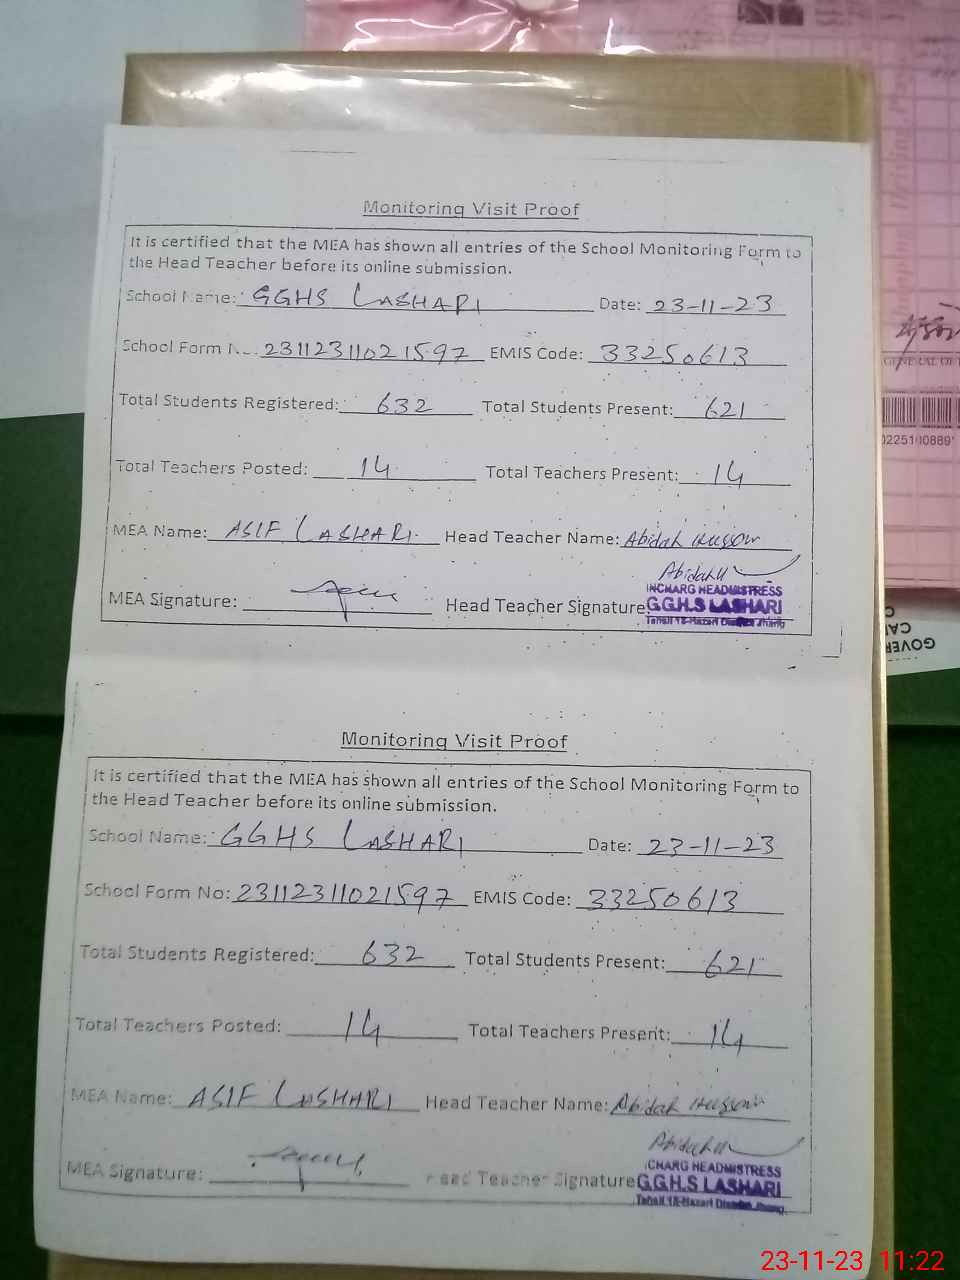 Monitoring Visit Proof
It is certified that the MEA has shown all entries of the School Monitoring Form to
the Head Teacher before its online submission.
School Name: GGHS LASHARI Date: 23-11-23
School Form N 23112311021597 EMIS Code: 33250613
Total Students Registered: 632 Total Students Present: 621
Total Teachers Posted: 14 Total Teachers Present: 14
MEA Name: ASIF LASHARI Head Teacher Name: Abidah Hussain
MEA Signature: Head Teacher Signature
AbidahH
INCHARG HEADMISTRESS
G.G.H.S LASHARI
Tehsil 18-Hazari District Jhang
Monitoring Visit Proof
It is certified that the MEA has shown all entries of the School Monitoring Form to
the Head Teacher before its online submission.
School Name: GGHS LASHARI Date: 23-11-23
School Form No: 23112311021597 EMIS Code: 33250613
Total Students Registered: 632 Total Students Present: 621
Total Teachers Posted: 14 Total Teachers Present: 14
MEA Name: ASIF LASHARI Head Teacher Name: Abidah Hussain
MEA Signature: Head Teacher Signature
AbidahH
NCHARG HEADMISTRESS
G.G.H.S LASHARI
Tehsil 18-Hazari District Jhang
GENERAL
GOVER
23-11-23 11:22